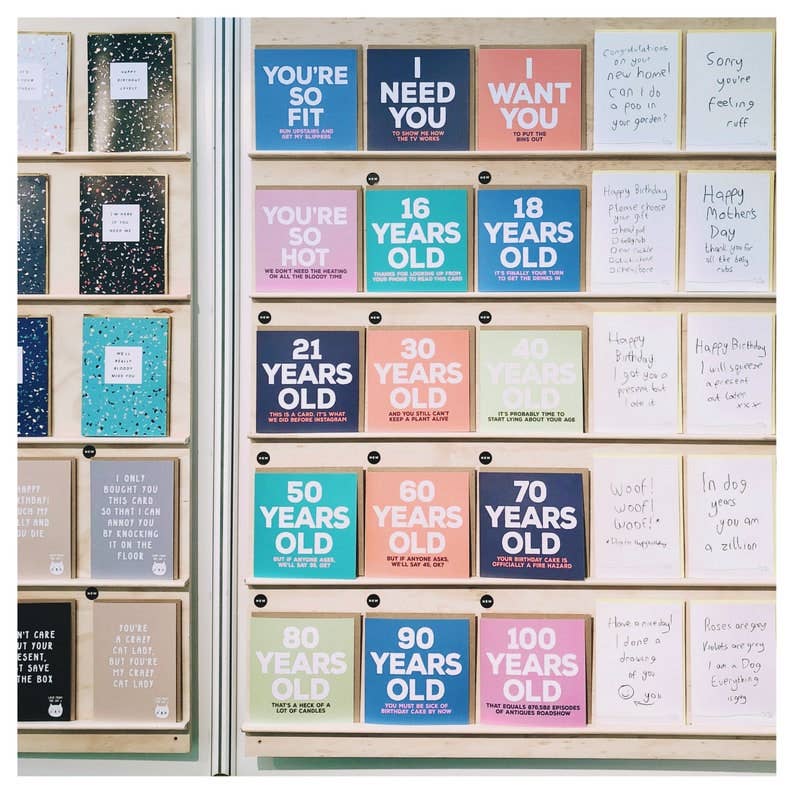 HAPPY
BIRTHDAY
LOVELY
I'M HERE IF
YOU NEED ME
WE'LL
REALLY
BLOODY
MISS YOU
I ONLY
BOUGHT YOU
THIS CARD
SO THAT I CAN
ANNOY YOU
BY KNOCKING
IT ON THE
FLOOR
HAPPY
AND
YOU DIE
CARE
YOUR
SAVE
THE BOX
YOU'RE
A CRAZY
CAT LADY,
BUT YOU'RE
MY CRAZY
CAT LADY
YOU'RE
SO
FIT
RUN UPSTAIRS AND
GET MY SLIPPERS
I
NEED
YOU
TO SHOW ME HOW
THE TV WORKS
I
WANT
YOU
TO PUT THE
BINS OUT
Congratulations
on your
new home!
Can I do
a poo in
your garden?
Sorry
you're
feeling
ruff
NEW
NEW
YOU'RE
SO
HOT
WE DON'T NEED THE HEATING
ON ALL THE BLOODY TIME
16
YEARS
OLD
THANKS FOR LOOKING UP FROM
YOUR PHONE TO READ THIS CARD
18
YEARS
OLD
IT'S FINALLY YOUR TURN
TO GET THE DRINKS IN
Happy Birthday
please choose
your gift
Happy
Mother's
Day
thank you for
all the belly
rubs
NEW
NEW
NEW
21
YEARS
OLD
THIS IS A CARD. IT'S WHAT
WE DID BEFORE INSTAGRAM
30
YEARS
OLD
AND YOU STILL CAN'T
KEEP A PLANT ALIVE
40
YEARS
OLD
IT'S PROBABLY TIME TO
START LYING ABOUT YOUR AGE
Happy
Birthday
I got you a
present but
I ate it
Happy Birthday
I will squeeze
a present
out later
xxx
NEW
NEW
NEW
NEW
50
YEARS
OLD
BUT IF ANYONE ASKS,
WE'LL SAY 39, OK?
60
YEARS
OLD
BUT IF ANYONE ASKS,
WE'LL SAY 49, OK?
70
YEARS
OLD
YOUR BIRTHDAY CAKE IS
OFFICIALLY A FIRE HAZARD
Woof!
woof!
woof!*
In dog
years
you am
a zillion
NEW
NEW
NEW
NEW
80
YEARS
OLD
THAT'S A HECK OF A
LOT OF CANDLES
90
YEARS
OLD
YOU MUST BE SICK OF
BIRTHDAY CAKE BY NOW
100
YEARS
OLD
THAT EQUALS 876,582 EPISODES
OF ANTIQUES ROADSHOW
Have a nice day!
I done a
drawing of
you
you
Roses are grey
Violets are grey
I am a Dog
Everything
is grey